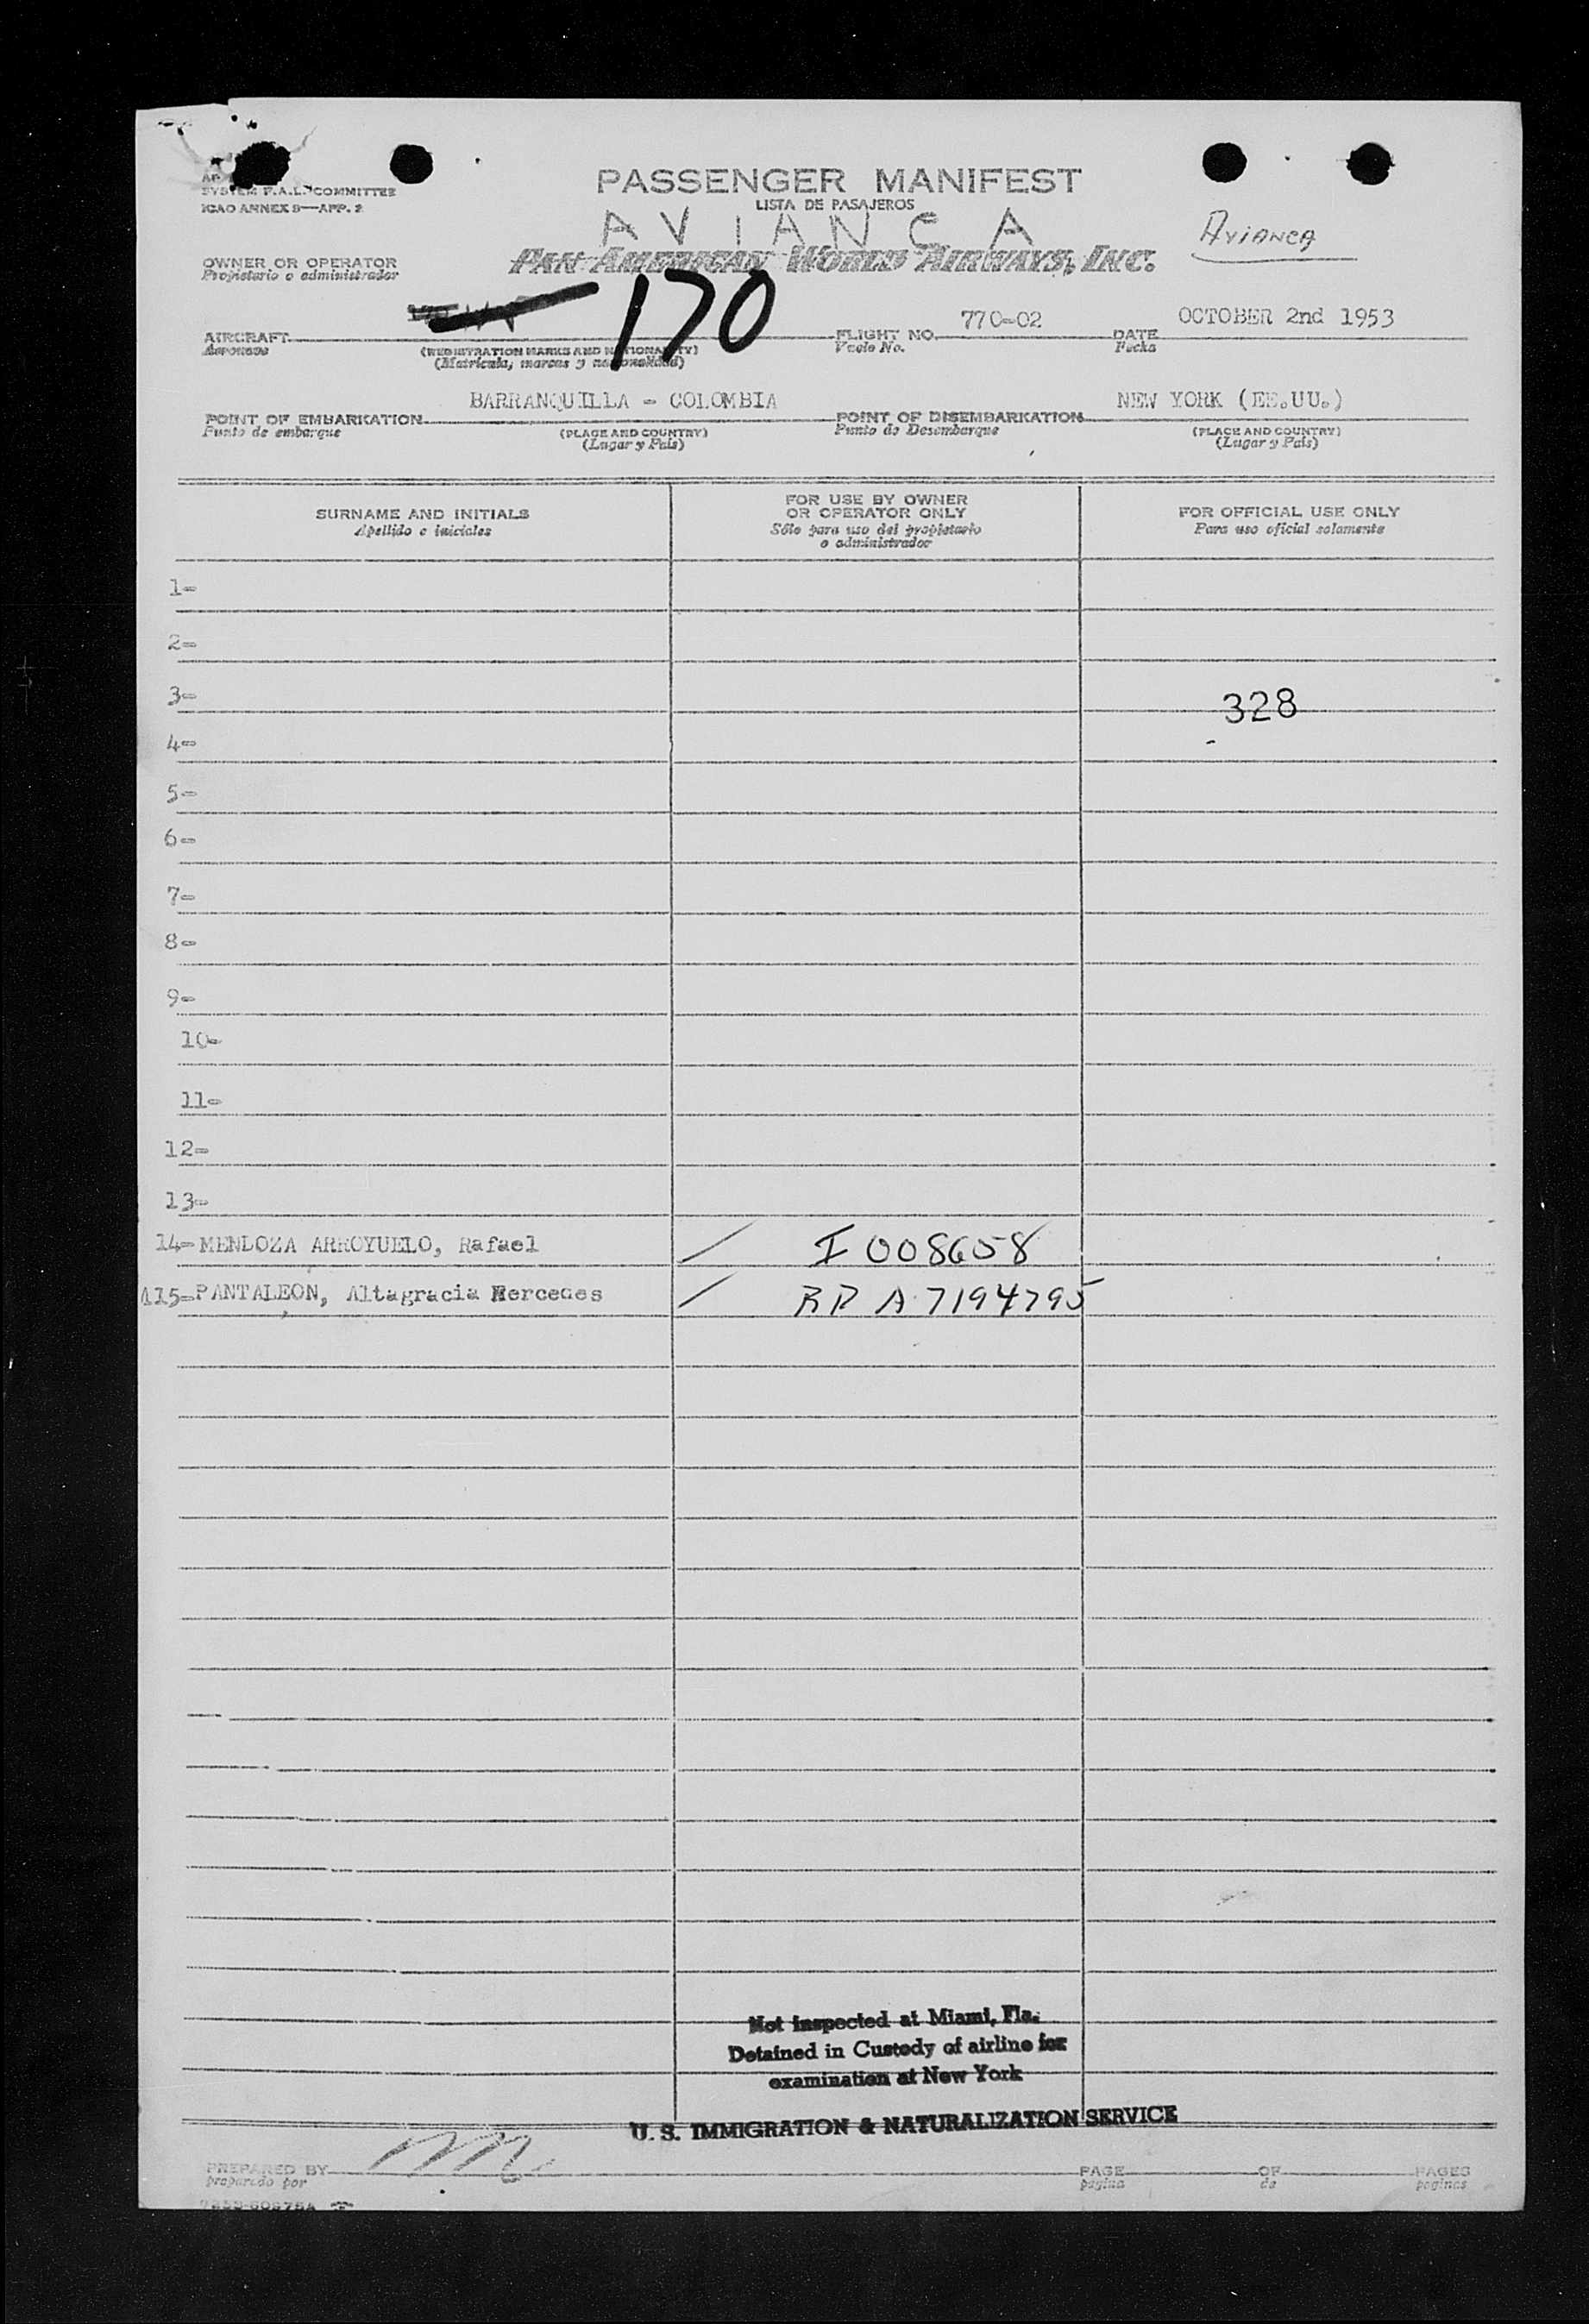 SYSTEM F.A.L. COMMITTEE
ICAO ANNEX 9—APP. 2
PASSENGER MANIFEST
LISTA DE PASAJEROS
AVIANCA
Avianca
OWNER OR OPERATOR
Propietario o administrador
PAN AMERICAN WORLD AIRWAYS, INC.
170
AIRCRAFT
Aeronave
(REGISTRATION MARKS AND NATIONALITY)
(Matrícula, marcas y nacionalidad)
FLIGHT NO. 770-02
Vuelo No.
DATE OCTOBER 2nd 1953
Fecha
POINT OF EMBARKATION BARRANQUILLA - COLOMBIA
Punto de embarque
(PLACE AND COUNTRY)
(Lugar y País)
POINT OF DISEMBARKATION NEW YORK (EE.UU.)
Punto de Desembarque
(PLACE AND COUNTRY)
(Lugar y País)
SURNAME AND INITIALS
Apellido e iniciales
FOR USE BY OWNER
OR OPERATOR ONLY
Sólo para uso del propietario
o administrador
FOR OFFICIAL USE ONLY
Para uso oficial solamente
1-
2-
3-
328
4-
5-
6-
7-
8-
9-
10-
11-
12-
13-
14- MENDOZA ARROYUELO, Rafael / I 008658
115- PANTALEON, Altagracia Mercedes / RP A 7194795
Not inspected at Miami, Fla.
Detained in Custody of airline for
examination at New York
U. S. IMMIGRATION & NATURALIZATION SERVICE
PREPARED BY
preparado por
PAGE OF PAGES
página de páginas